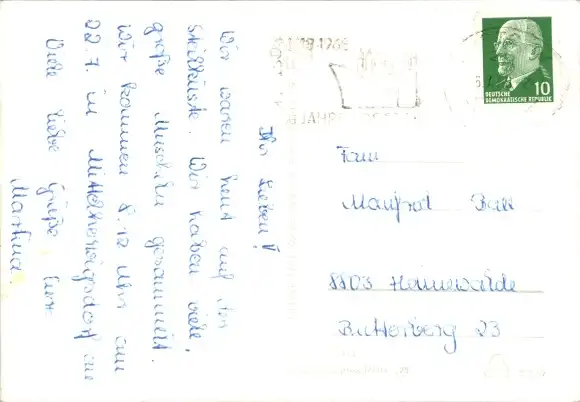 Ihr Lieben!
Wir waren heut auf der
Steilküste. Wir haben viele,
große Muscheln gesammelt.
Wir kommen 8.12 Uhr am
22.7. in Mittelherwigsdorf an
Viele liebe Grüße Eure
Martina
10
DEUTSCHE
DEMOKRATISCHE REPUBLIK
Fam
Manfred
8803 Hainewalde
Butterberg 23